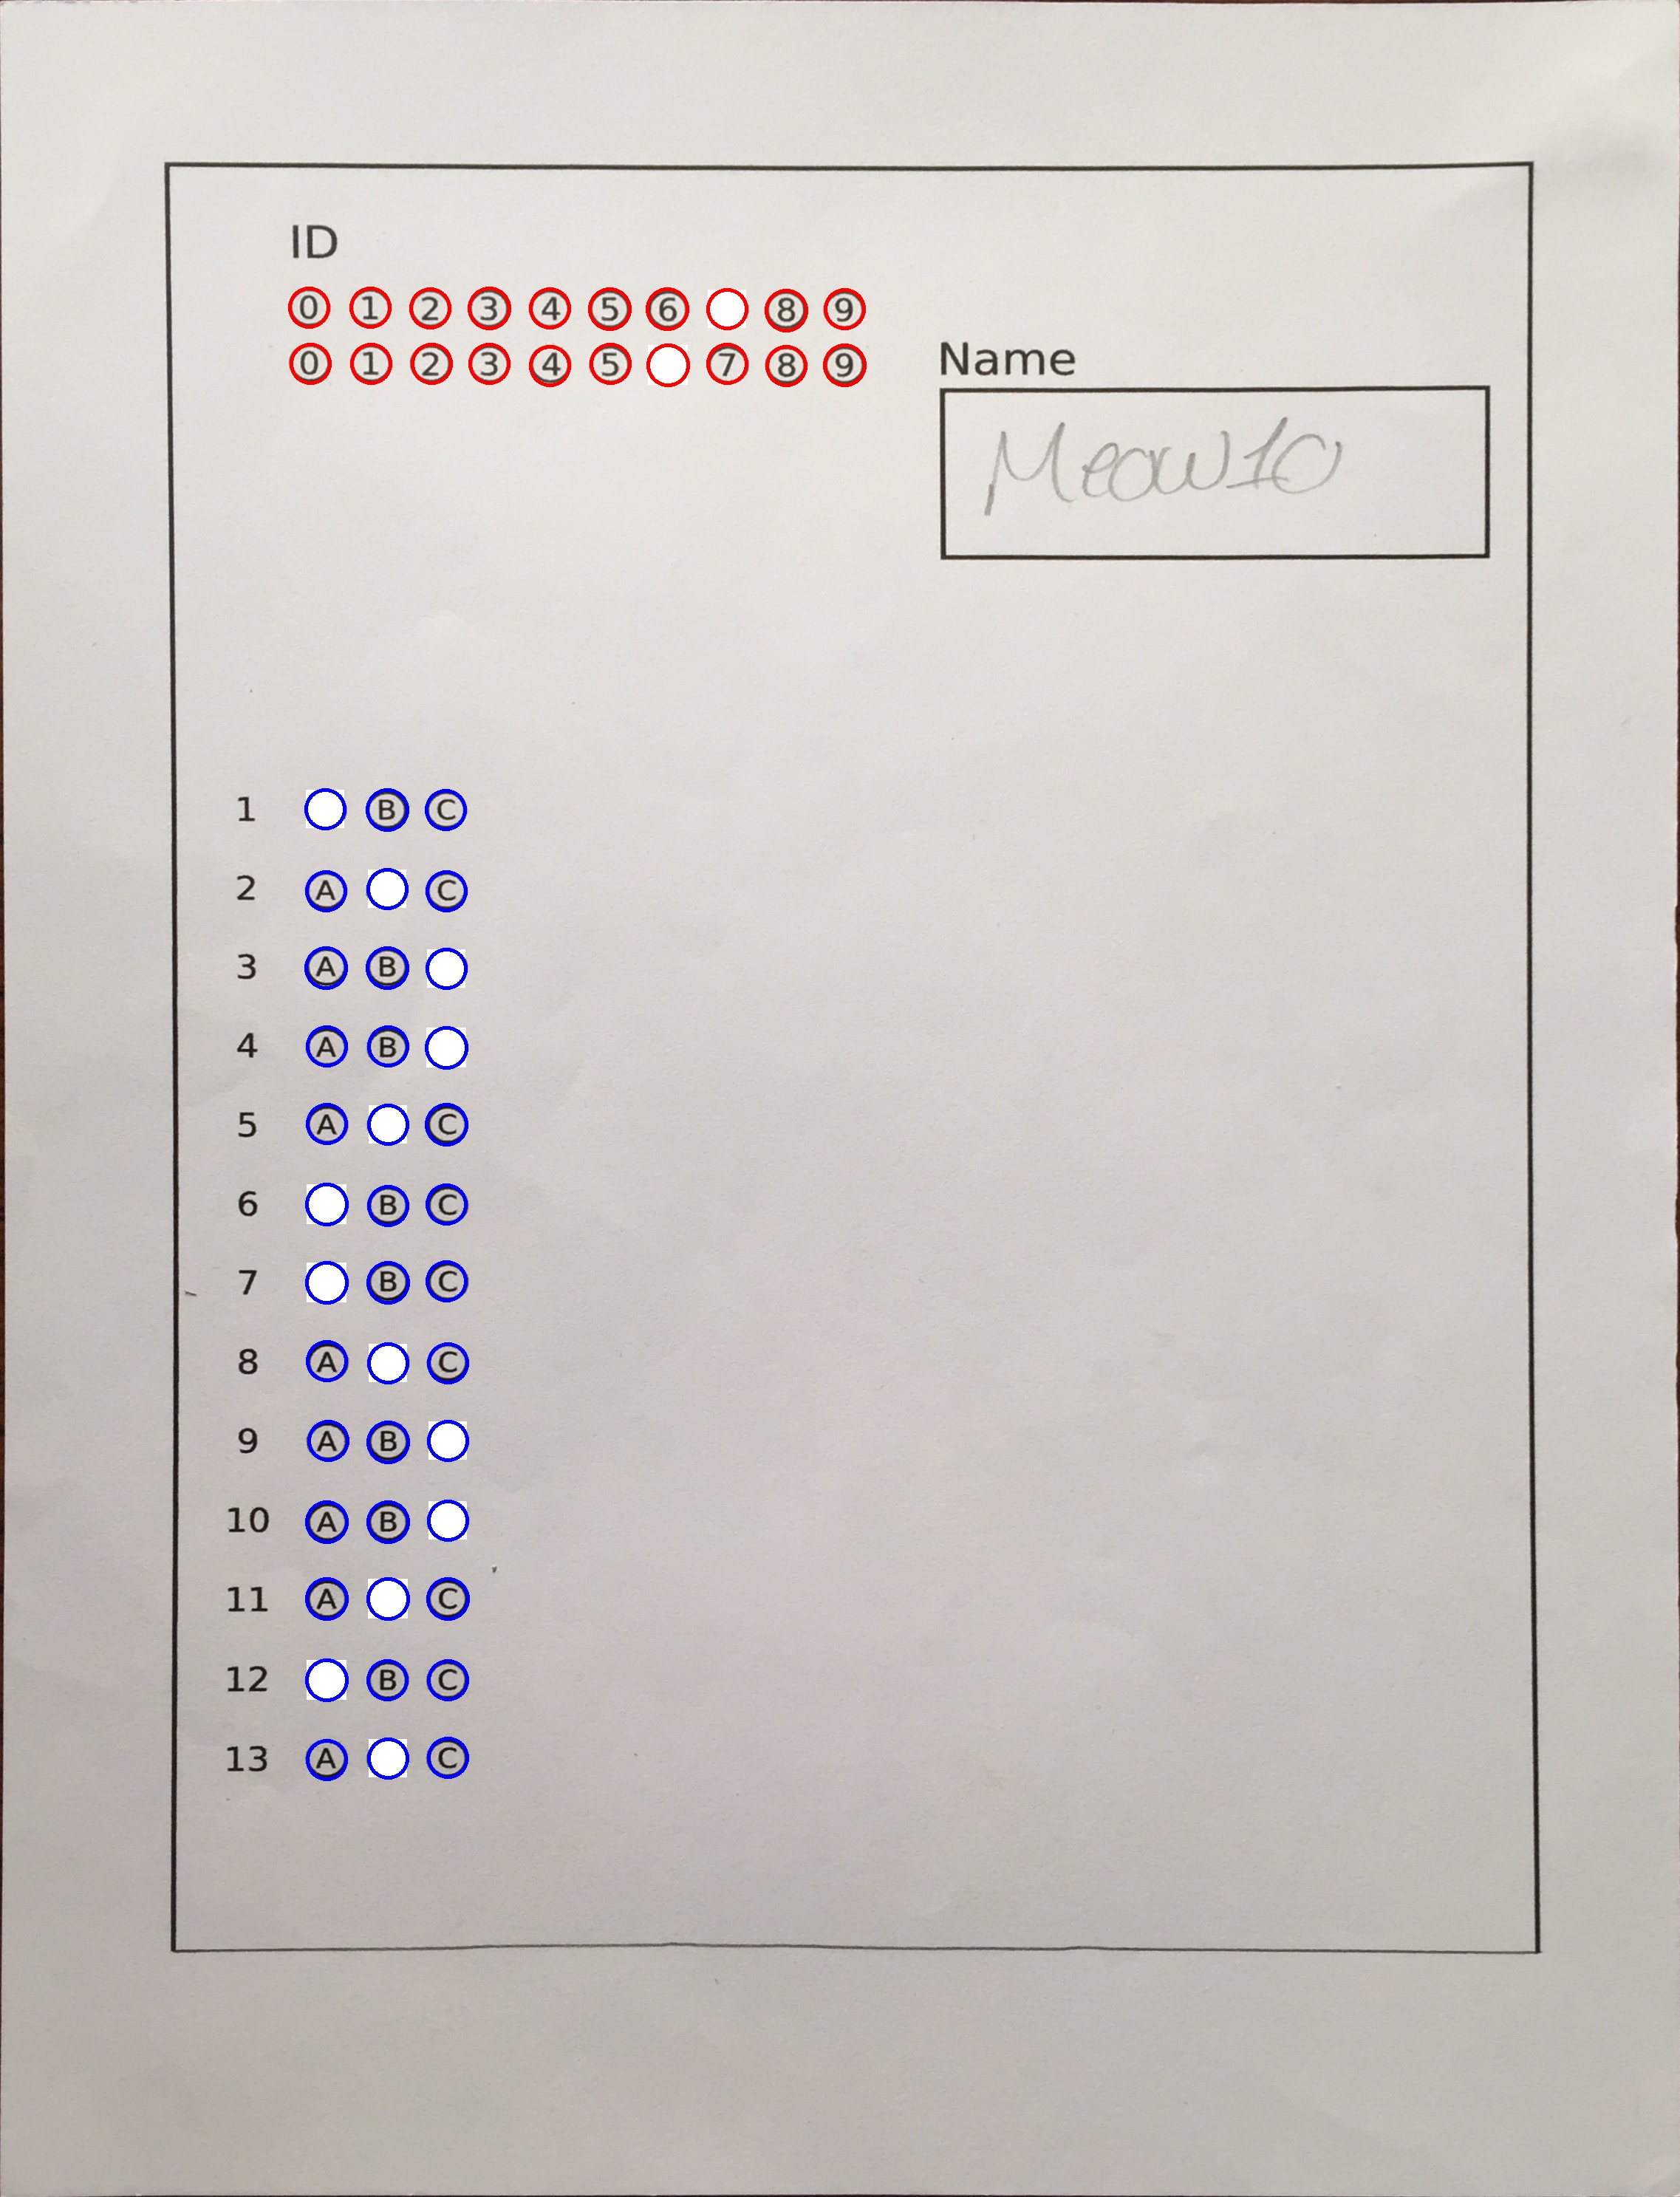 ID
0 1 2 3 4 5 6 8 9
0 1 2 3 4 5 7 8 9
Name
Meow10
1 B C
2 A C
3 A B
4 A B
5 A C
6 B C
7 B C
8 A C
9 A B
10 A B
11 A C
12 B C
13 A C